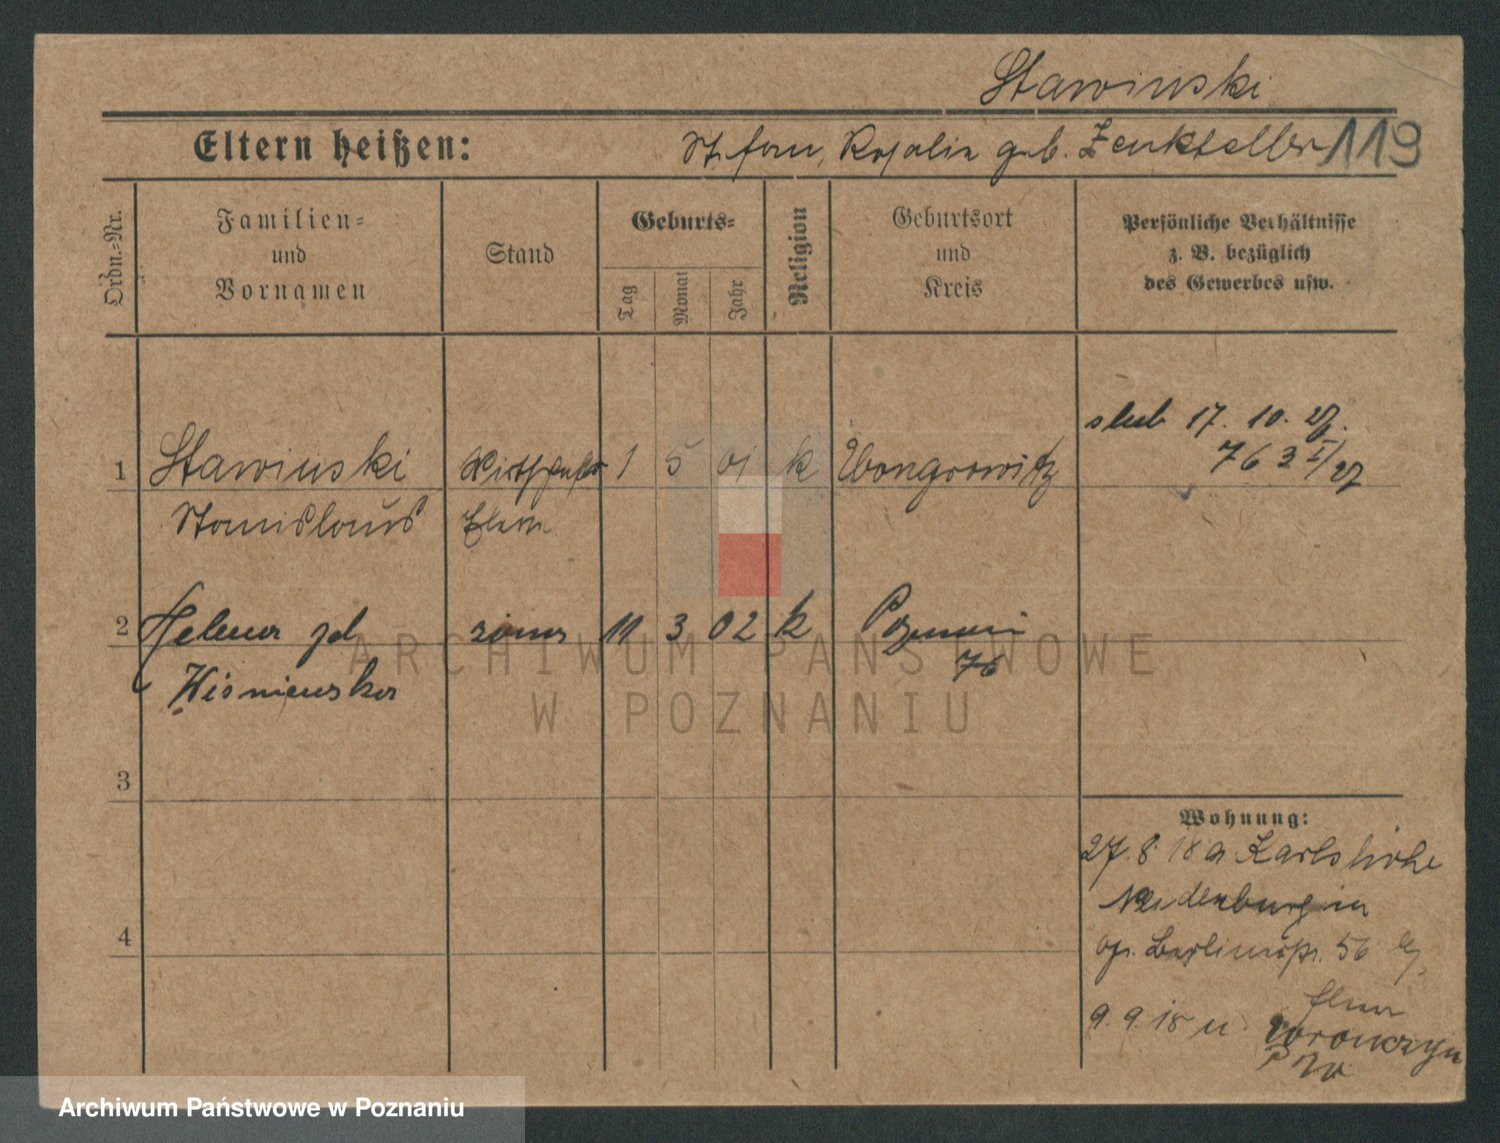 Stawinski
Eltern heißen: Stefan, Rosalie geb. Zenkteller 119
Ordn.-Nr.
Familien-
und
Vornamen
Stand
Geburts-
Tag
Monat
Jahr
Religion
Geburtsort
und
Kreis
Persönliche Verhältnisse
z. B. bezüglich
des Gewerbes usw.
slub 17. 10. 27.
763 I/27
1 Stawinski 1 5 01 k Wongrowitz
Stanislaus
2 Helena zd żona 11 3 02 k Poznań
Wisniewska 76
3
Wohnung:
27. 8. 18 a Karlshöhe
Neidenburg in
4
Berlinerstr. 56
9. 9. 18 n. Wronczyn
ARCHIWUM PAŃSTWOWE
W POZNANIU
Archiwum Państwowe w Poznaniu